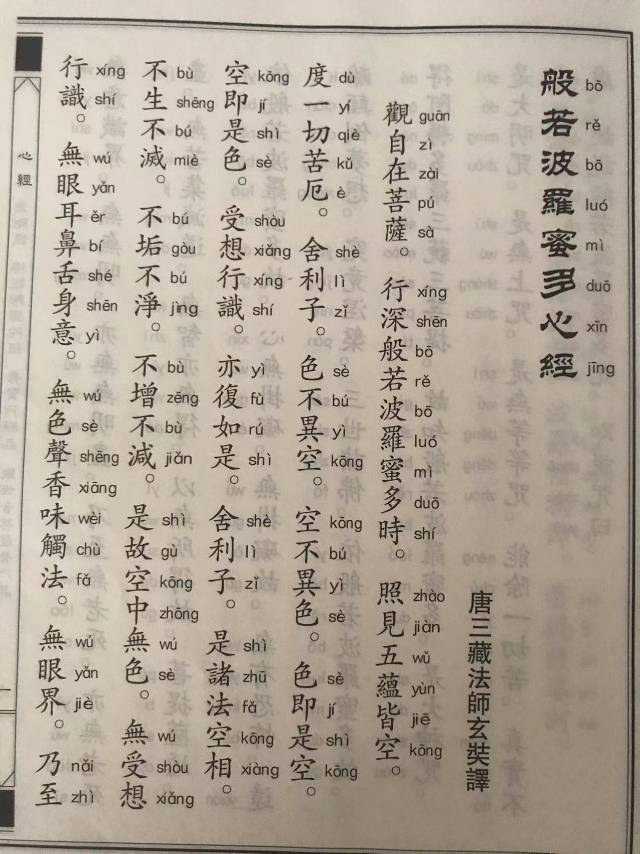 般若波羅蜜多心經
bō rě bō luó mì duō xīn jīng
唐三藏法師玄奘譯
觀自在菩薩。行深般若波羅蜜多時。照見五蘊皆空。
guān zì zài pú sà xíng shēn bō rě bō luó mì duō shí zhào jiàn wǔ yùn jiē kōng
度一切苦厄。舍利子。色不異空。空不異色。色即是空。
dù yí qiè kǔ è shè lì zǐ sè bú yì kōng kōng bú yì sè sè jí shì kōng
空即是色。受想行識。亦復如是。舍利子。是諸法空相。
kōng jí shì sè shòu xiǎng xíng shí yì fù rú shì shè lì zǐ shì zhū fǎ kōng xiàng
不生不滅。不垢不淨。不增不減。是故空中無色。無受想
bù shēng bú miè bú gòu bú jìng bù zēng bù jiǎn shì gù kōng zhōng wú sè wú shòu xiǎng
行識。無眼耳鼻舌身意。無色聲香味觸法。無眼界。乃至
xíng shí wú yǎn ěr bí shé shēn yì wú sè shēng xiāng wèi chù fǎ wú yǎn jiè nǎi zhì
心經